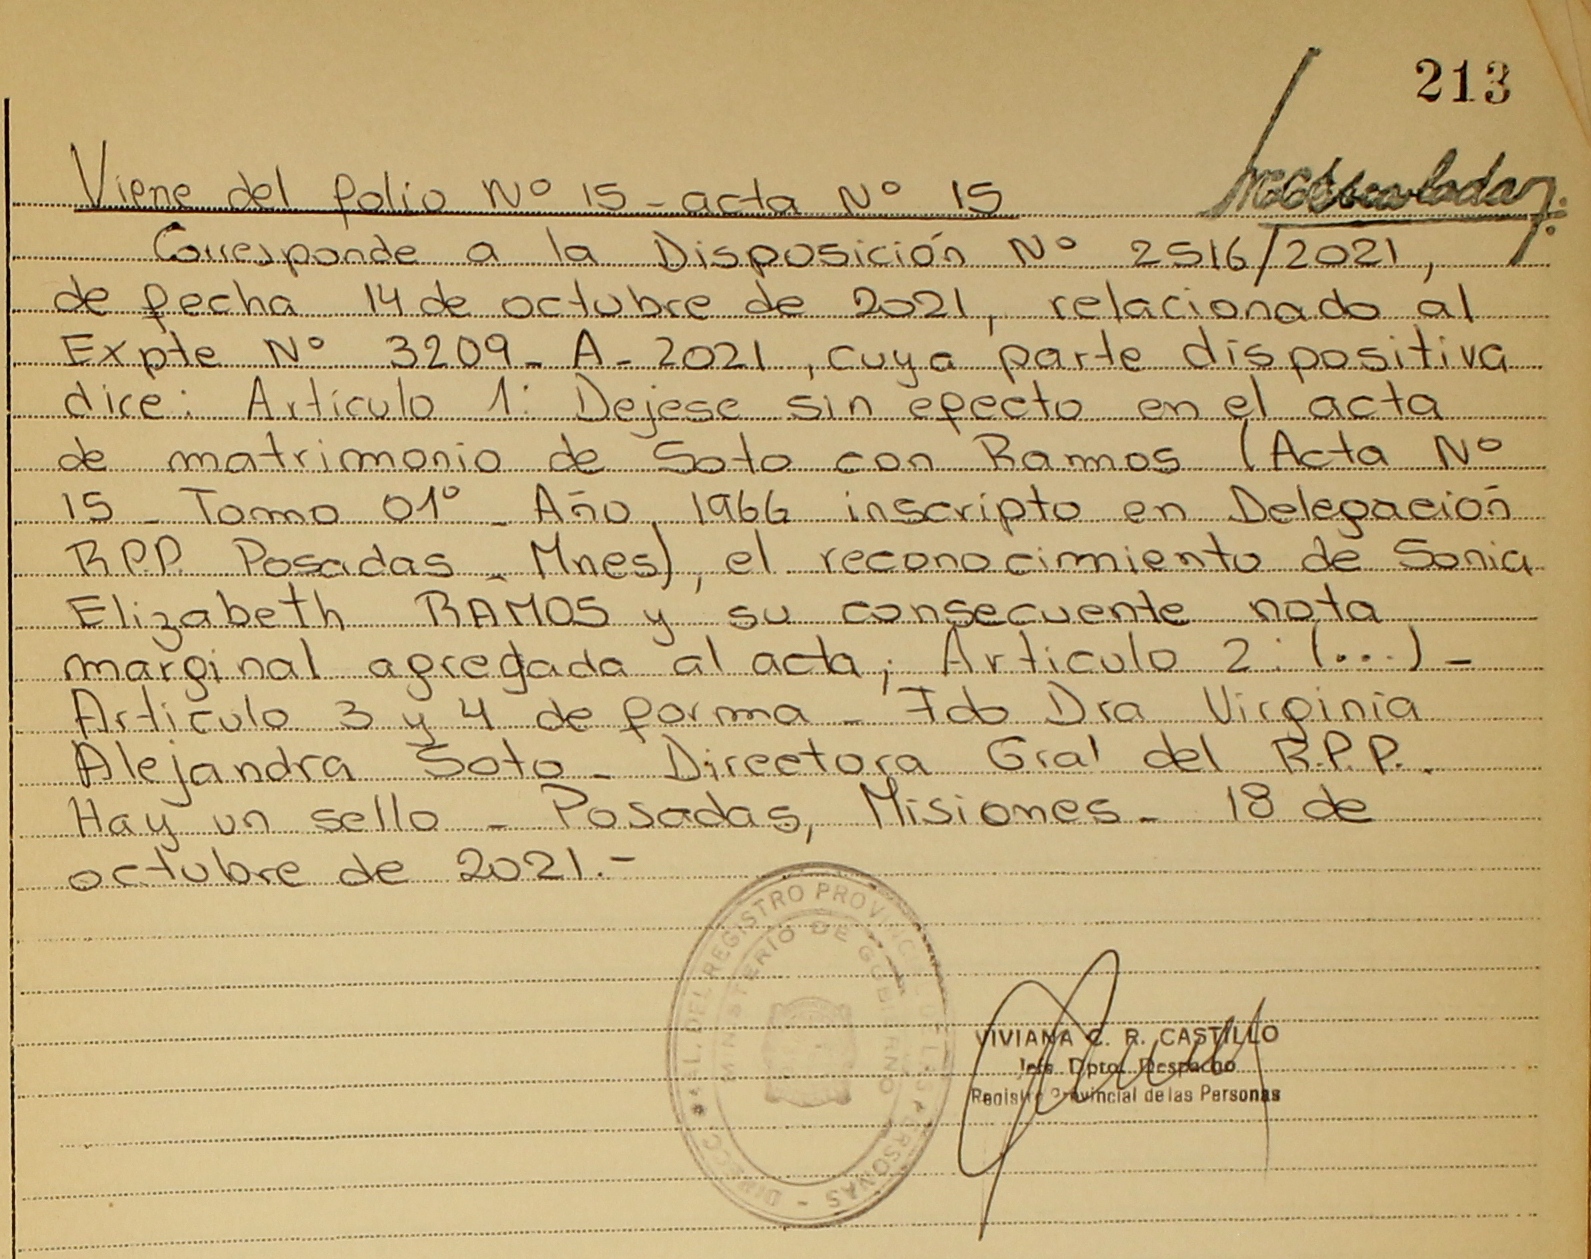 213
Viene del folio Nº 15 - acta Nº 15
Corresponde a la Disposición Nº 2516/2021,
de fecha 14 de octubre de 2021, relacionado al
Expte Nº 3209 - A - 2021, cuya parte dispositiva
dice: Artículo 1: Dejese sin efecto en el acta
de matrimonio de Soto con Ramos (Acta Nº
15 - Tomo 01º - Año 1966 inscripto en Delegación
R.P.P. Posadas - Mnes), el reconocimiento de Sonia
Elizabeth RAMOS y su consecuente nota
marginal agregada al acta; Articulo 2: (...) -
Articulo 3 y 4 de forma - Fdo Dra Virginia
Alejandra Soto - Directora Gral del R.P.P.
Hay un sello - Posadas, Misiones - 18 de
octubre de 2021.-
DIRECC. AL. DEL REGISTRO PROVINCIAL DE LAS PERSONAS
MINISTERIO DE GOBIERNO
VIVIANA C. R. CASTILLO
Jefe Dpto. Despacho
Registro Provincial de las Personas